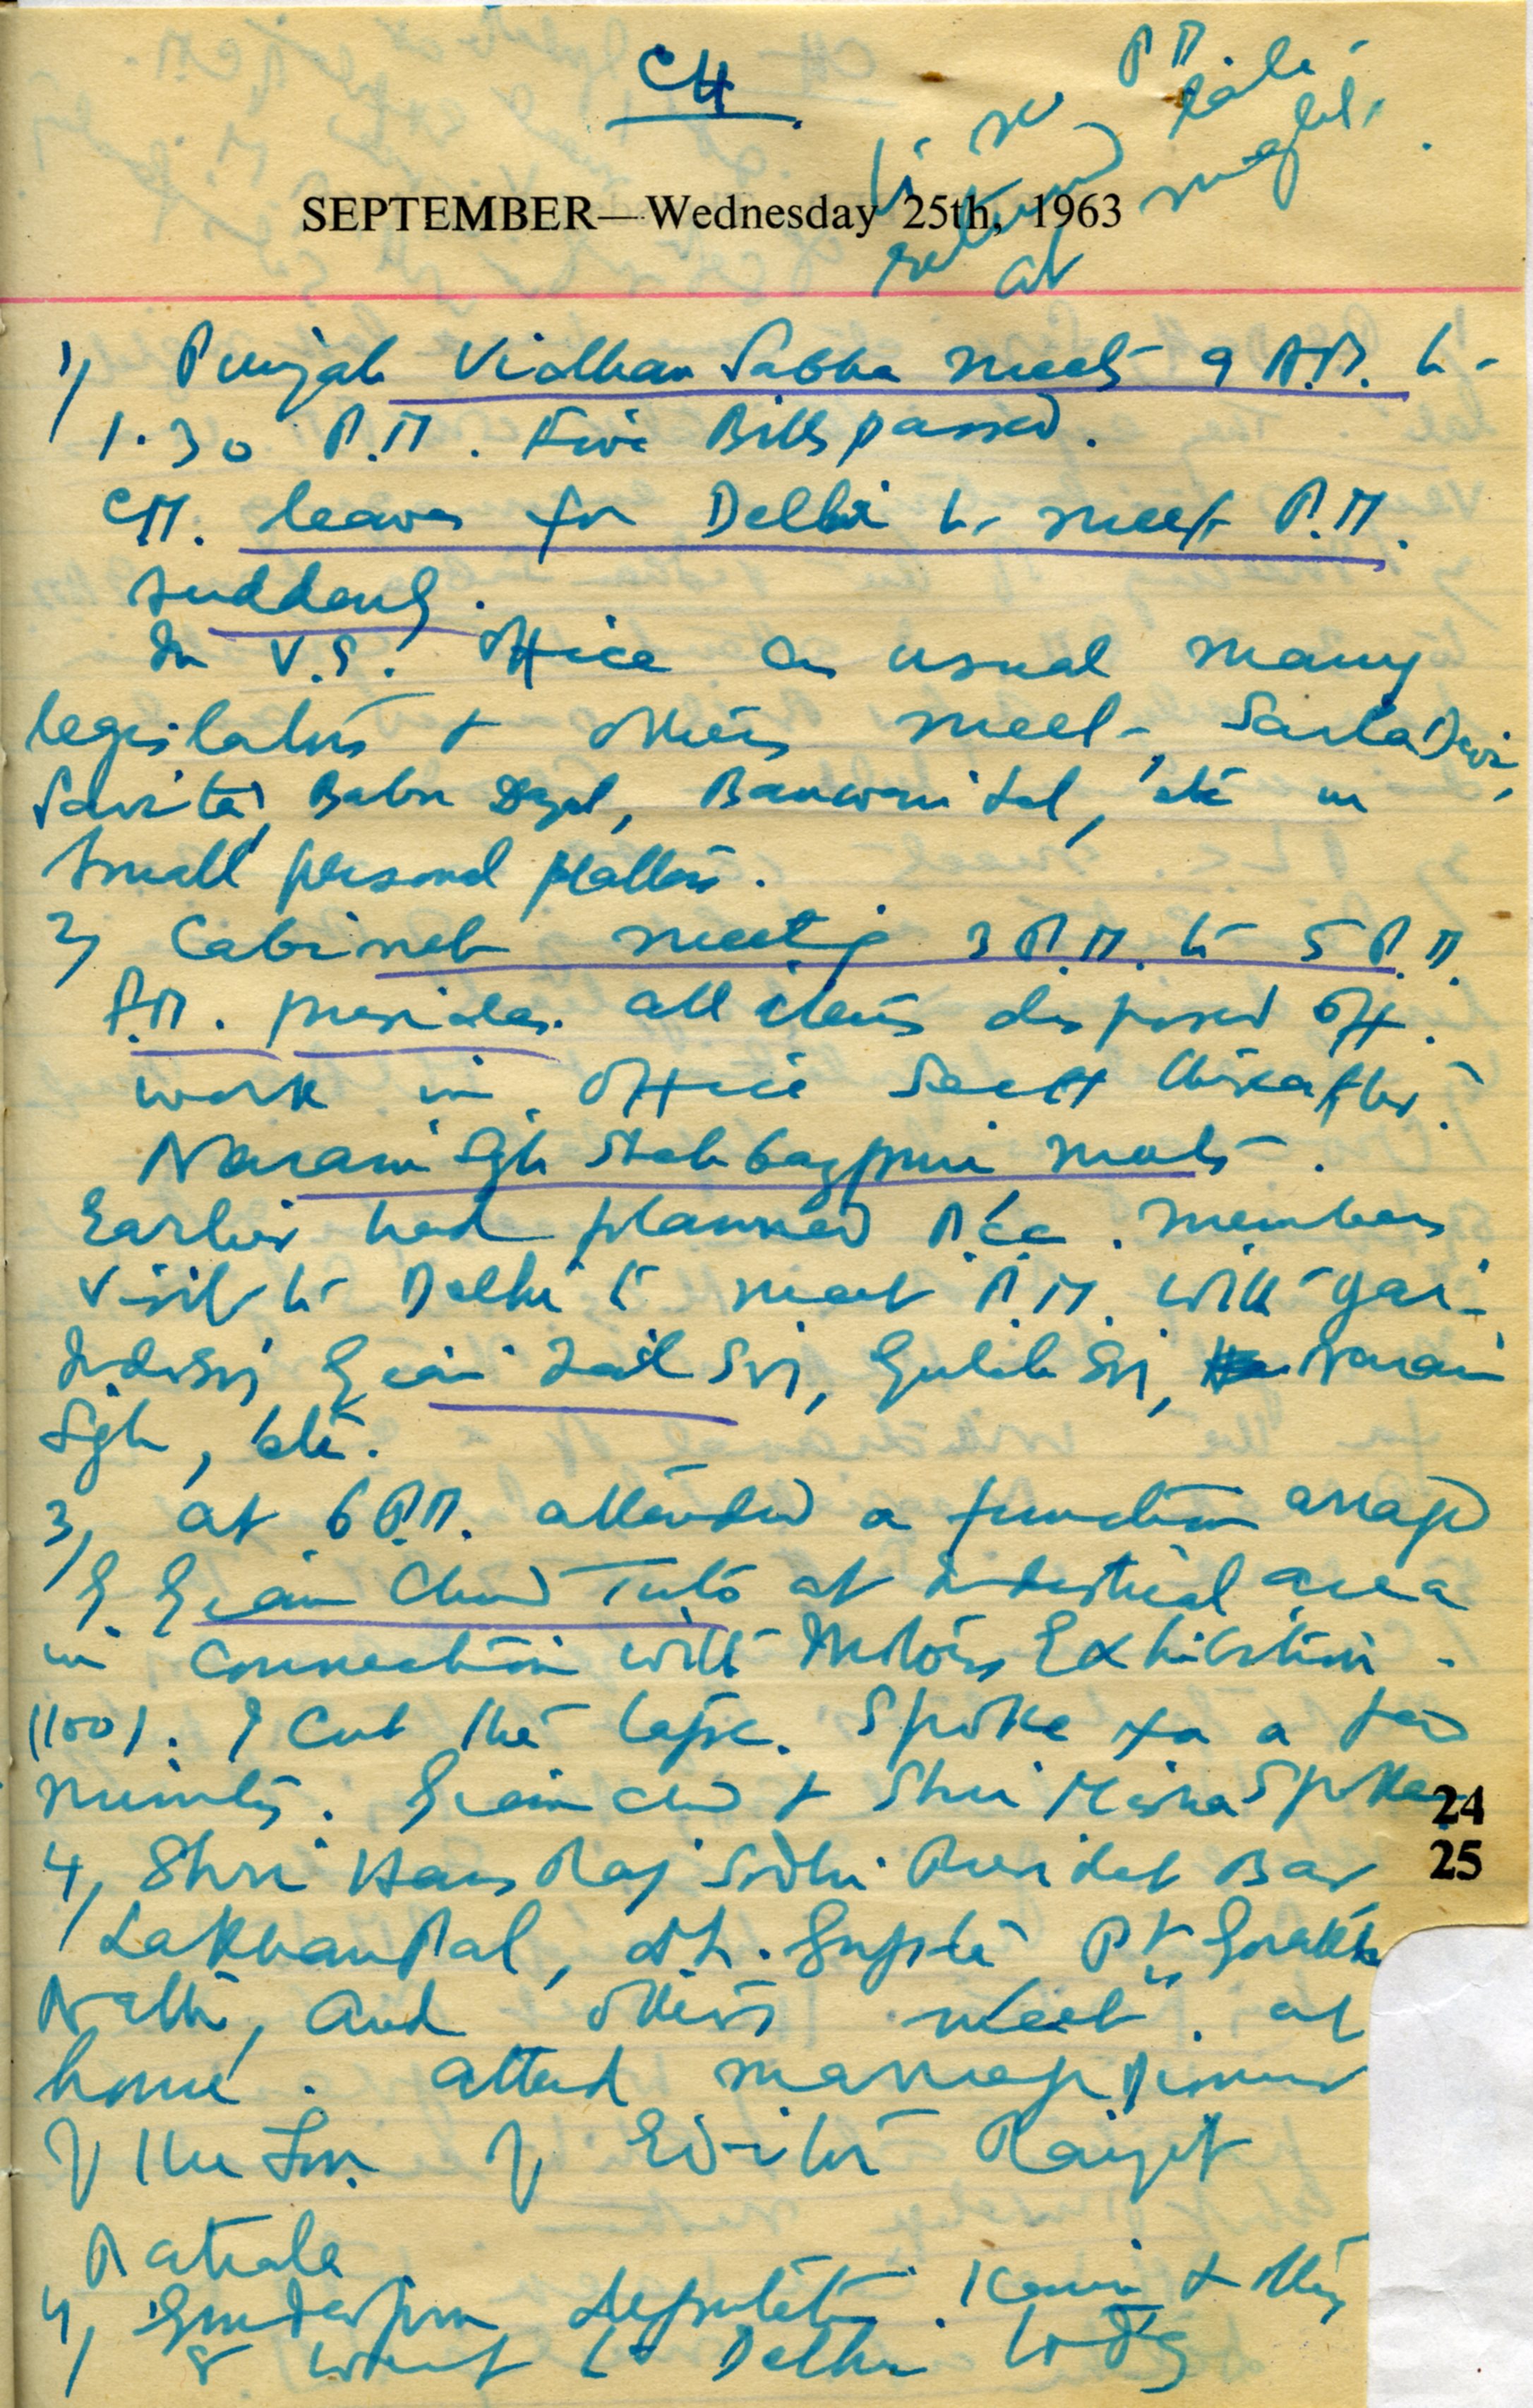 CH
P.M.
late
to see
night.
returned
at
SEPTEMBER—Wednesday 25th, 1963
1, Punjab Vidhan Sabha meets 9 A.M. to
1.30 P.M. Five Bills passed.
C.M. leaves for Delhi to meet P.M.
suddenly.
In V.S. Office as usual many
legislators + others meet, Sarla Devi,
Savitri, Babu Dayal, Banwari Lal, etc in
small personal matters.
2, Cabinet meeting 3 P.M. to 5 P.M.
presides. all items disposed off.
work in office Sectt thereafter.
Narain Sgh Shahbazpuri meets.
Earlier had planned P.C.C. members
visit to Delhi to meet P.M. with Yas-
Gian Zail Sgh, Gulab Sgh, Narain
Sgh, etc.
3, at 6 P.M. attended a function arranged
by Gian Chand at Industrial area
in connection with Motors Exhibition.
(100). I cut the tape. Spoke for a few
minutes. Gian Chand + Shri Misra Spoke
24
25
4, Shri Hans Raj Sodhi President Bar
Lakhanpal, Gupta Pt Gorakh
Nath, and others meet at
home. attend marriage Dinner
of the Son of Editor Ranjit
Patiala
4, Gurdaspur deputation. +
8 went to Delhi today